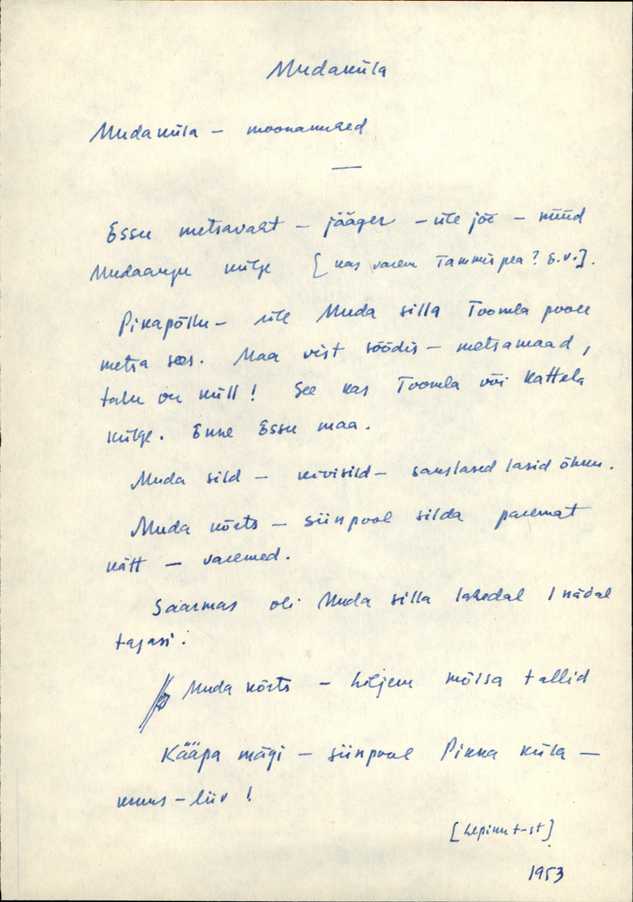 Mudaküla
Mudaküla — moonamehed
Essu metsavaht — jääger — üle jõe — nüüd
Mudaaugu külge [kas varem Tammispea? E.V.].
Pikapõllu — üle Muda silla Toomla poole
metsa sees. Maa vist söödis — metsamaad,
talu on küll! See kas Toomla või Kattela
külge. Enne Essu maa.
Muda sild — kivisild — sakslased lasid õhku.
Muda kõrts — siinpool silda paremat
kätt — varemed.
Saarmas oli Muda silla lähedal 1 nädal
tagasi!
Muda kõrts — hiljem mõisa tallid
Kääpa mägi — siinpool Pikka küla —
kruus — liiv!
[Lepiku t-st]
1953